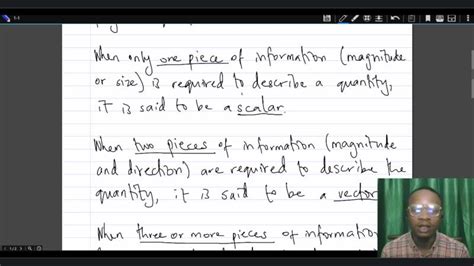 When only one piece of information (magnitude
or size) is required to describe a quantity,
it is said to be a scalar.
When two pieces of information (magnitude
and direction) are required to describe the
quantity, it is said to be a vector
When three or more pieces of information